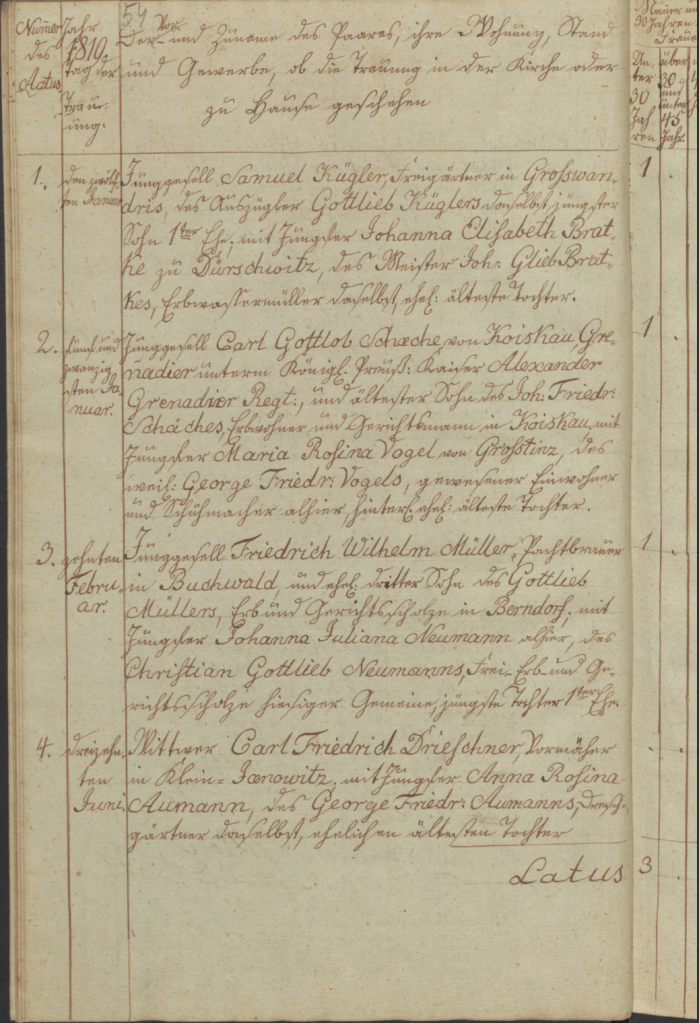 54
Numer
des
Actus
Jahr
1819.
tag der
Trau-
ung.
Der Vor- und Zuname des Paares, ihre Wohnung, Stand
und Gewerbe, ob die Trauung in der Kirche oder
zu Hause geschehen
30 Jahren
Un-
ter
30
Jah
ren
über
30
und
unter
45
Jahr.
1. den zwölf-
ten Januar
Junggesell Samuel Kügler, Freigärtner in Grosswan-
dris, des Auszügler Gottlieb Küglers daselbst, jüngster
Sohn 1ster Ehe, mit Jungfer Johanna Elisabeth Brat-
ke zu Dürschwitz, des Meister Joh: Glieb Brat-
kes, Erbwassermüller daselbst, ehel: älteste Tochter.
1
2. fünf und
zwanzig
sten Ja
nuar.
Junggesell Carl Gottlob Schæche von Koiskau, Gre-
nadier unterm Königl. Preuß: Kaiser Alexander
Grenadier Regt:, und ältester Sohn des Joh: Friedr:
Schäches, Erbwohner und Gerichtsmann in Koiskau, mit
Jungfer Maria Rosina Vogel von Grosstinz, des
weil: George Friedr: Vogels, gewesener Einwohner
und Schuhmacher alhier, hinterl. ehel: älteste Tochter.
1
3. zehnten
Febru
ar.
Junggesell Friedrich Wilhelm Müller, Pachtbrauer
in Buchwald, und ehel: dritter Sohn des Gottlieb
Müllers, Erb und Gerichtsscholze in Berndorf, mit
Jungfer Johanna Juliana Neumann alhier, des
Christian Gottlieb Neumanns, Frei- Erb- und Ge-
richtsscholze hiesiger Gemeine, jüngste Tochter 1ster Ehe.
1
4. dreizehn
ten
Juni
Wittwer Carl Friedrich Drieschner, Vormäher
in Klein-Jænowitz, mit Jungfer Anna Rosina
Aumann, des George Friedr: Aumanns, Dresch-
gärtner daselbst, ehelichen ältesten Tochter
Latus 3